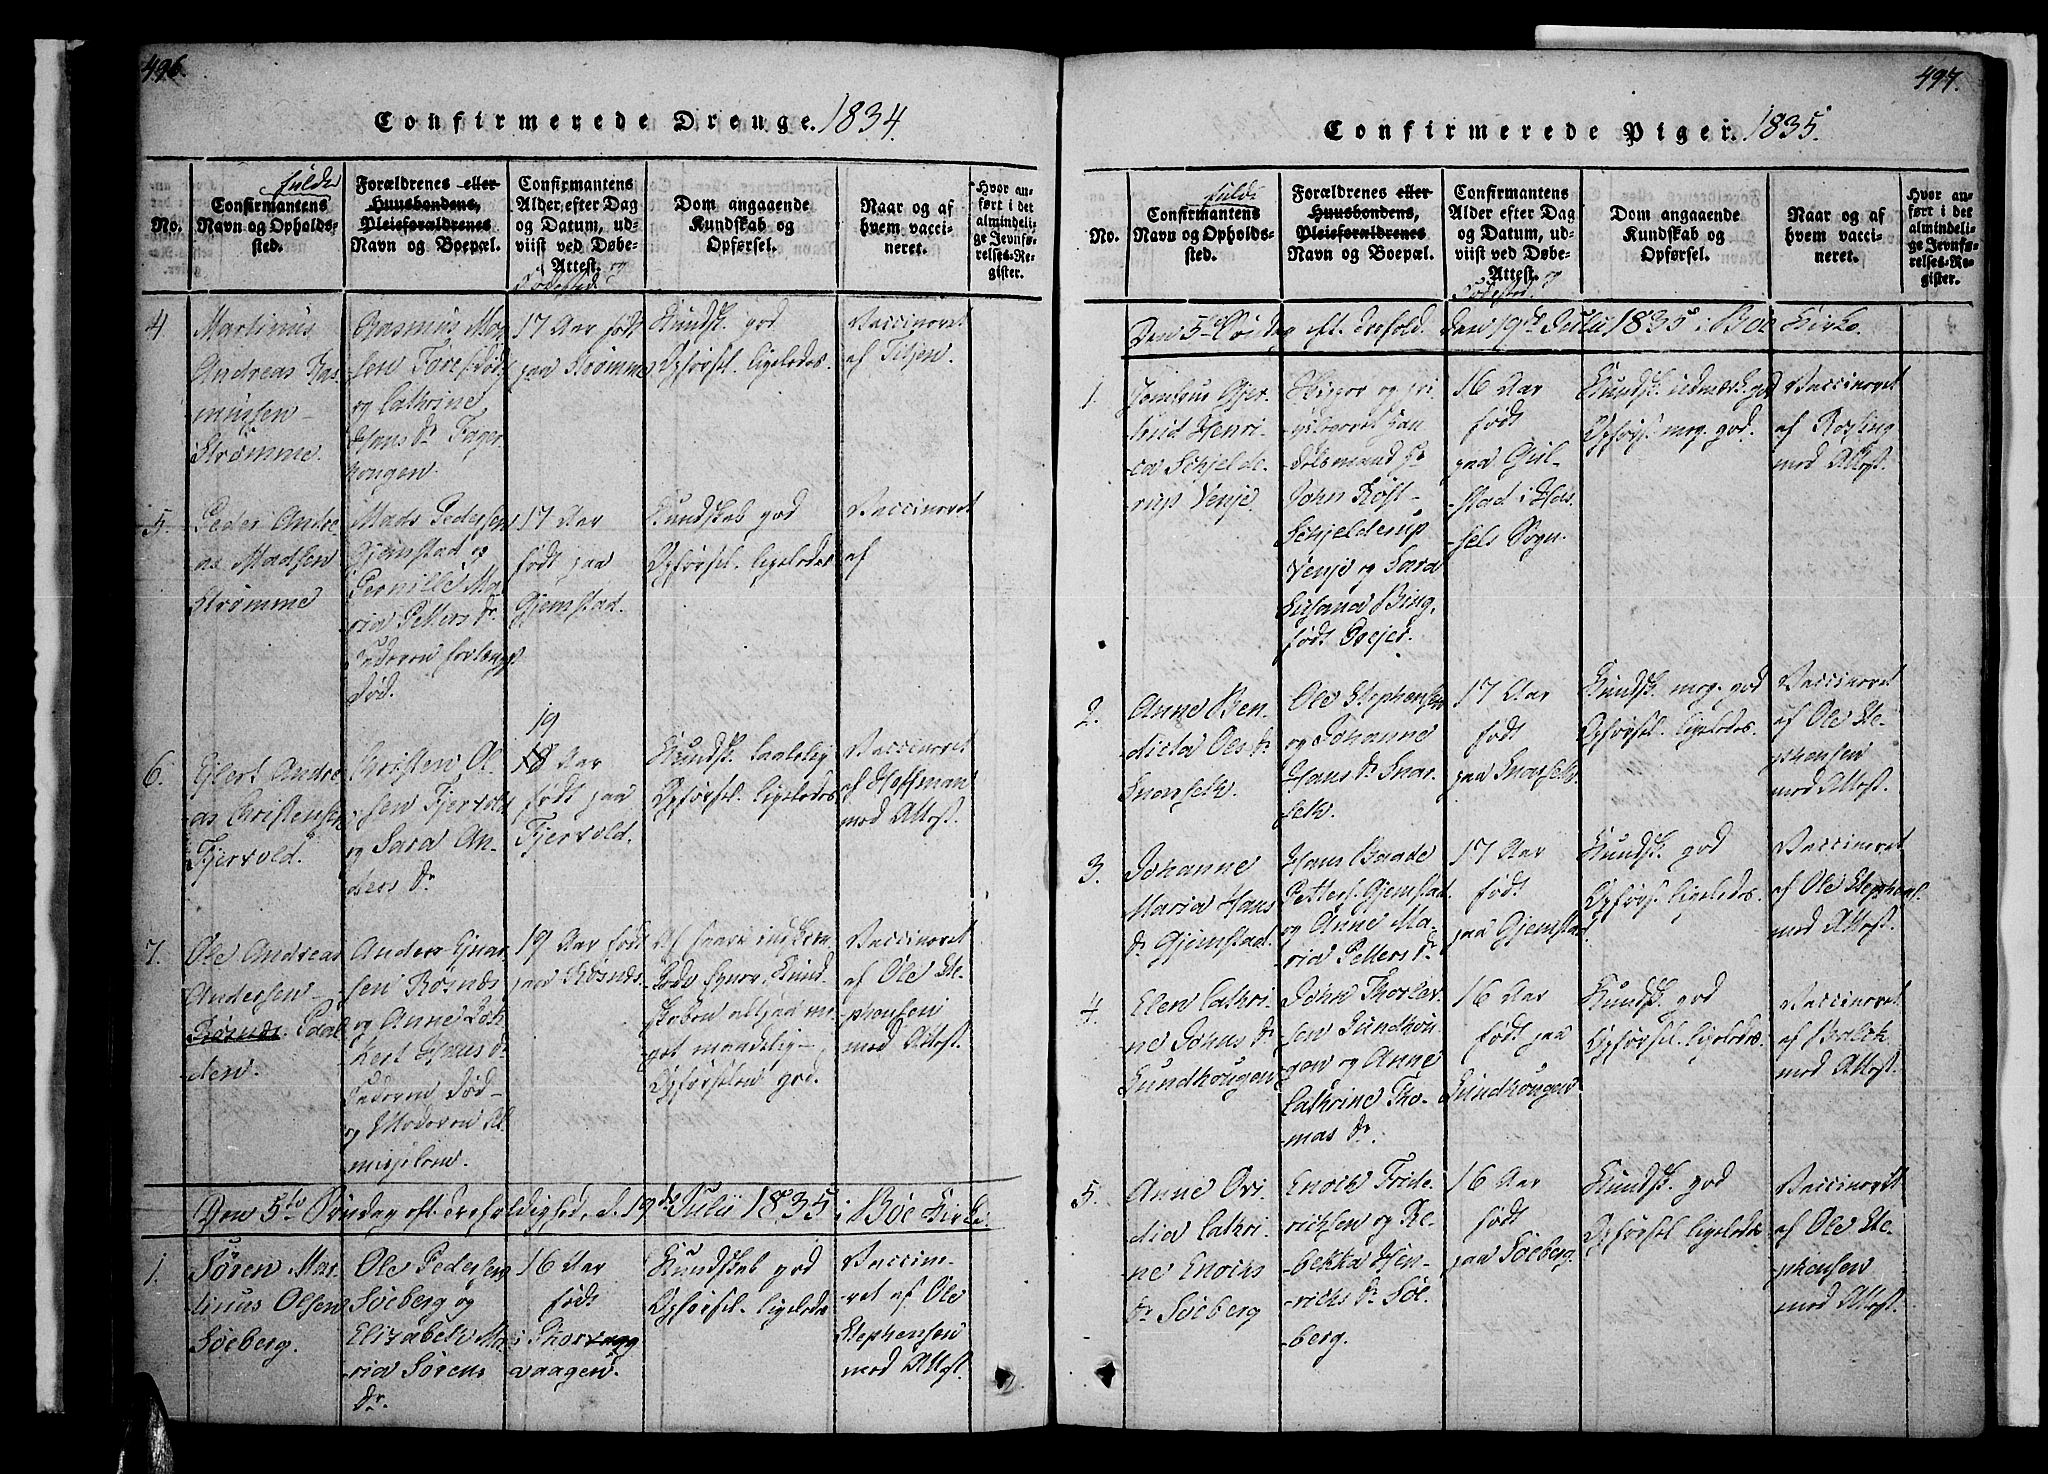 496.
Confirmerede Drenge. 1834.
No.
fulde
Confirmantens
Navn og Opholds-
sted.
Forældrenes eller
Huusbondens,
Pleieforældrenes
Navn og Boepæl.
Confirmantens
Alder efter Dag
og Datum, ud-
viist ved Døbe-
Attest. og
Fødested.
Dom angaaende
Kundskab og
Opførsel.
Naar og af
hvem vacci-
neret.
Hvor an-
ført i det
almindeli-
ge Jevnfø-
relses-Re-
gister.
4.
Martinus
Andreas Ras-
mussen
Strømme.
Rasmus Mo-
sen Fore
og Cathrine
Hans Dr Fager-
hougen.
17 Aar født
paa Strømme
Kundsk. god
Opførsel ligeledes.
Vaccineret
af Titjen.
5.
Peder Andre-
as Madsen
Strømme
Mads Pedersen
Gjemstad og
Pernille Ma-
ria Petters Dr
Faderen forlængst
død.
17 Aar
født paa
Gjemstad.
Kundskab god
Opførsel ligeledes
Vaccineret
af
6.
Ejlert Andre-
as Christensen
Fjervold.
Christen Ol-
sen Fjervold
og Sara An-
ders Dr
19
18 Aar
født paa
Fjervold.
Kundsk. taalelig
Opførsel ligeledes
Vaccineret
af Hoffman
med Attest.
7.
Ole Andreas
Andersen
Røsnes Paal-
den.
Anders Ejnar-
sen Røsnes
og Anne
Hans Dr
Faderen død
og Moderen
19 Aar født
paa Røsnes.
Af
Kund-
skaben
get maadelig
Opførselen god.
Vaccineret
af Ole Ste-
phensen
med Attest.
Den 5te Søndag eft. Trefoldighed, d. 19de Julii 1835 i Bøe Kirke.
1.
Søren Mar-
tinus Olsen
Søeberg.
Ole Pedersen
Søeberg og
Elisabeth Ma-
ria Sørens
Dr.
16 Aar
født
i Thorvagg
vaagen.
Kundskab god
Opførsel ligeledes
Vaccine-
ret af Ole
Stephensen
med Attest.
497.
Confirmerede Piger. 1835.
No.
fulde
Confirmantens
Navn og Opholds-
sted.
Forældrenes eller
Huusbondens,
Pleieforældrenes
Navn og Boepæl.
Confirmantens
Alder efter Dag
og Datum, ud-
viist ved Døbe-
Attest. og
Fødested.
Dom angaaende
Kundskab og
Opførsel.
Naar og af
hvem vacci-
neret.
Hvor an-
ført i det
almindeli-
ge Jevnfø-
relses-Re-
gister.
Den 5te Søndag eft. Trefold. den 19de Julii 1835 i Bøe Kirke.
1.
Gjer-
trud Henri-
ca Schjelde-
rup Venje.
og pri-
vilegeret Han-
delsmand Hr
John Røst
Schjelderup
Venje og Sara
Susana Bing,
født Brejer.
16 Aar
født
paa Gul-
stad i Has-
sels Sogn.
Kundsk. udmærket god
Opførs. meg. god.
Vaccineret
af Rosting
med Attest.
2.
Anne Ben-
dicta Ols Dr
Snarseth.
Ole Stephensen
og Johanne
Hans Dr Snar-
seth.
17 Aar
født
paa Snarseth.
Kundsk. meg. god
Opførsel ligeledes.
Vaccineret
af Ole Ste-
phensen
med Attest.
3.
Johanne
Maria Hans
Dr Gjemstad.
Hans Baade
Petters. Gjemstad
og Anne Ma-
ria Petters Dr
17 Aar
født
paa Gjemstad.
Kundsk. god
Opførsel ligeledes.
Vaccineret
af Ole Stephens.
med Attest.
4.
Elen Cathri-
ne Johns Dr
Sundhougen
John Thorlef-
sen Sundhou-
gen og Anne
Cathrine Tho-
mas Dr.
16 Aar
født paa
Sundhougen
Kundsk. god
Opførsel ligeledes.
Vaccineret
af Balch
med Attest.
5.
Anne Ovi-
dia Cathri-
ne Enochs
Dr Søeberg
Enoch Fride-
richsen og Re-
bekka Hen-
richs Dr Søe-
berg.
16 Aar
født
paa Søeberg.
Kundsk. god
Opførsel ligeledes
Vaccineret
af Ole Ste-
phensen
med Attest.